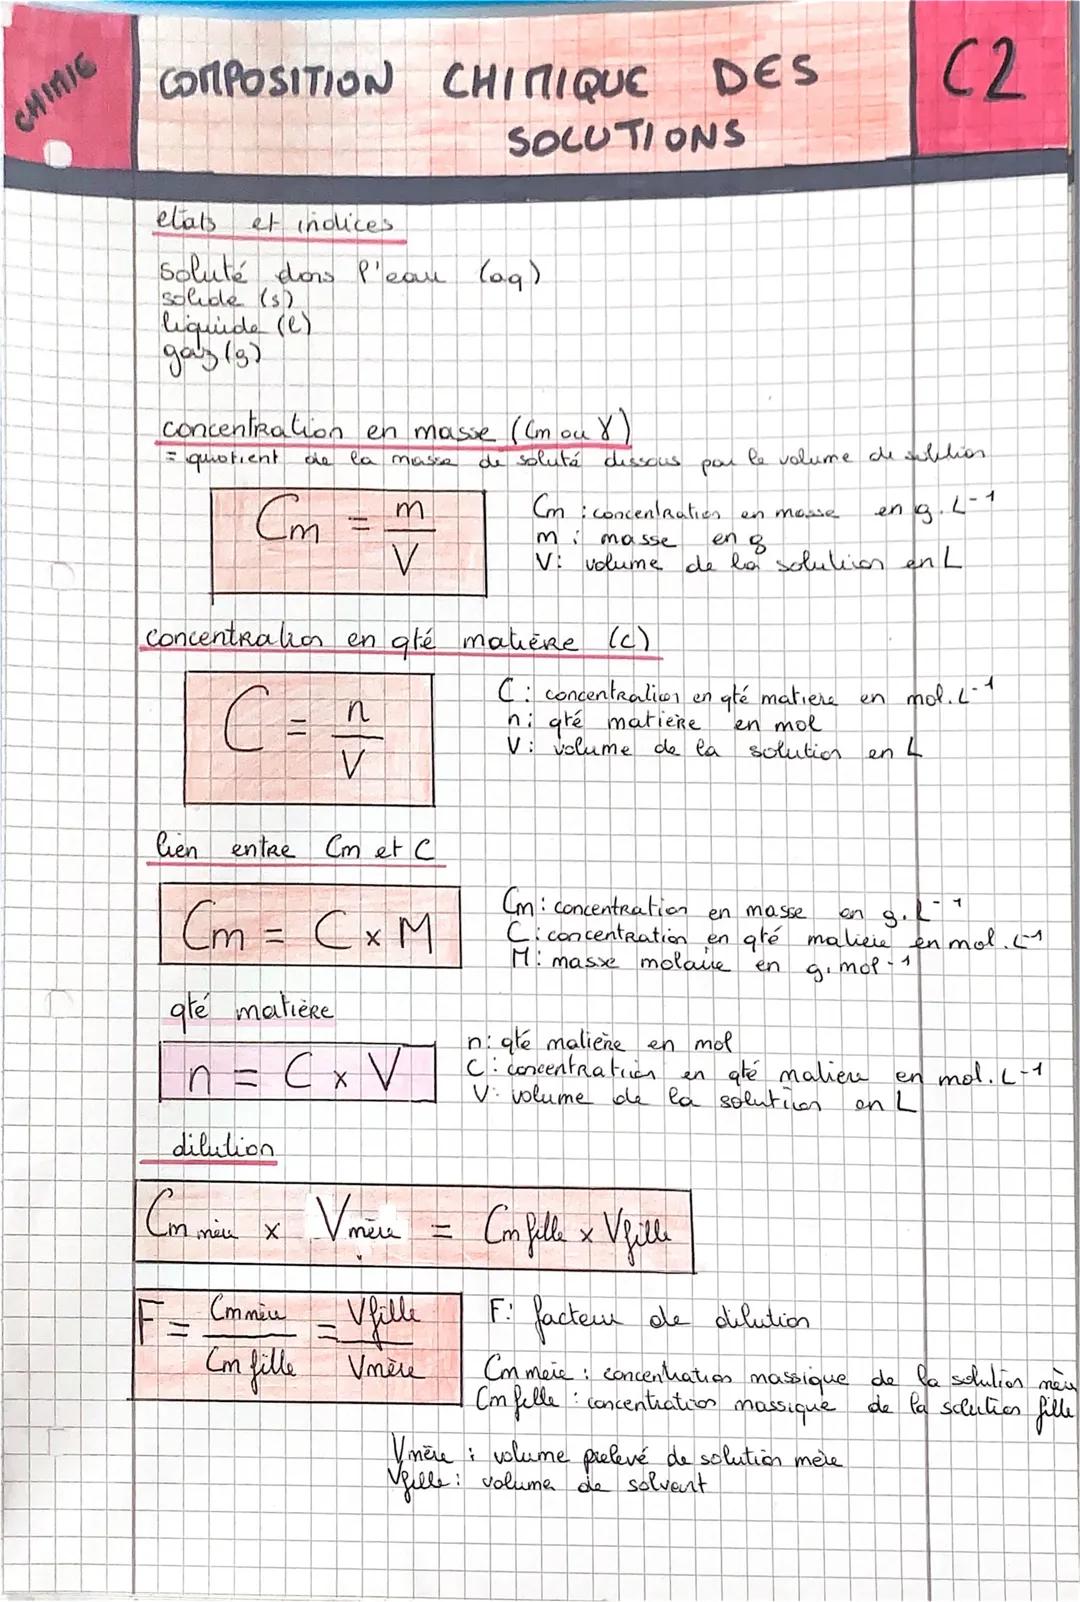 CHIMIE
COMPOSITION CHIMIQUE DES
SOLUTIONS
C2
etats et indices
soluté dans l'eau (aq)
solide (s)
liquide (l)
gaz (g)
concentration en masse (Cm ou γ)
= quotient de la masse de soluté dissous par le volume de solution
Cm = m/V
Cm : concentration en masse en g.L⁻¹
m : masse en g
V : volume de la solution en L
concentration en qté matière (c)
C = n/V
C : concentration en qté matière en mol.L⁻¹
n : qté matière en mol
V : volume de la solution en L
lien entre Cm et C
Cm = C x M
Cm : concentration en masse en g.L⁻¹
C : concentration en qté matière en mol.L⁻¹
M : masse molaire en g.mol⁻¹
qté matière
n = C x V
n : qté matière en mol
C : concentration en qté matière en mol.L⁻¹
V : volume de la solution en L
dilution
Cm mère x Vmère = Cm fille x Vfille
F = Cm mère/Cm fille = Vfille/Vmère
F : facteur de dilution
Cm mère : concentration massique de la solution mère
Cm fille : concentration massique de la solution fille
Vmère : volume prelevé de solution mère
Vfille : volume de solvant